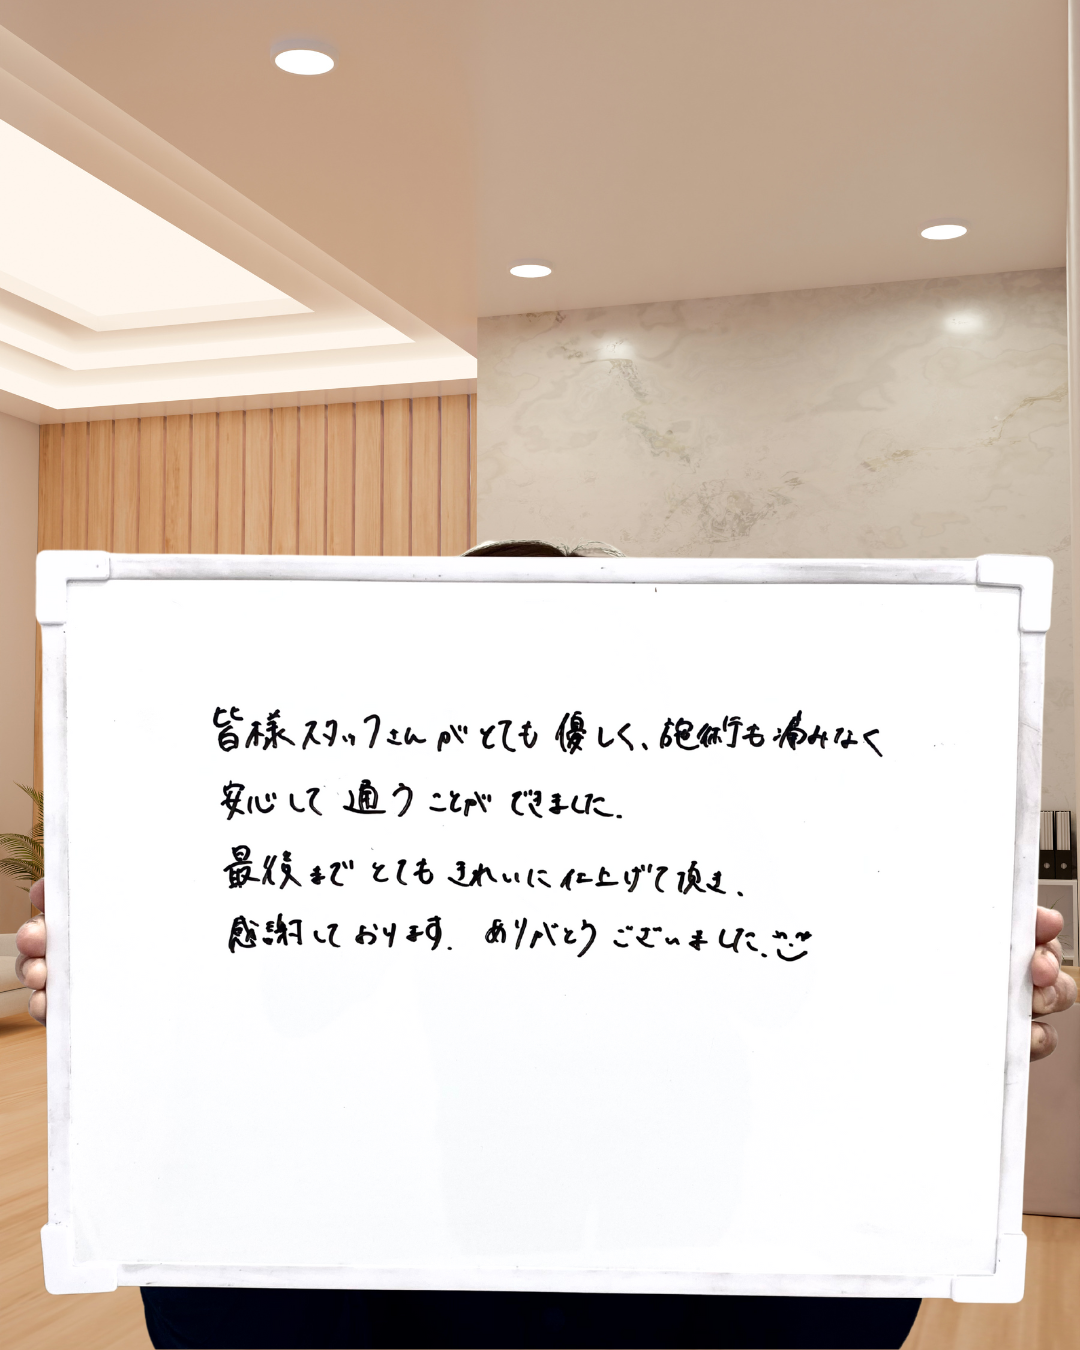 皆様スタッフさんがとても優しく、施術も痛みなく
安心して通うことができました.
最後まで とてもきれいに仕上げて頂き.
感謝しております. ありがとうございました.